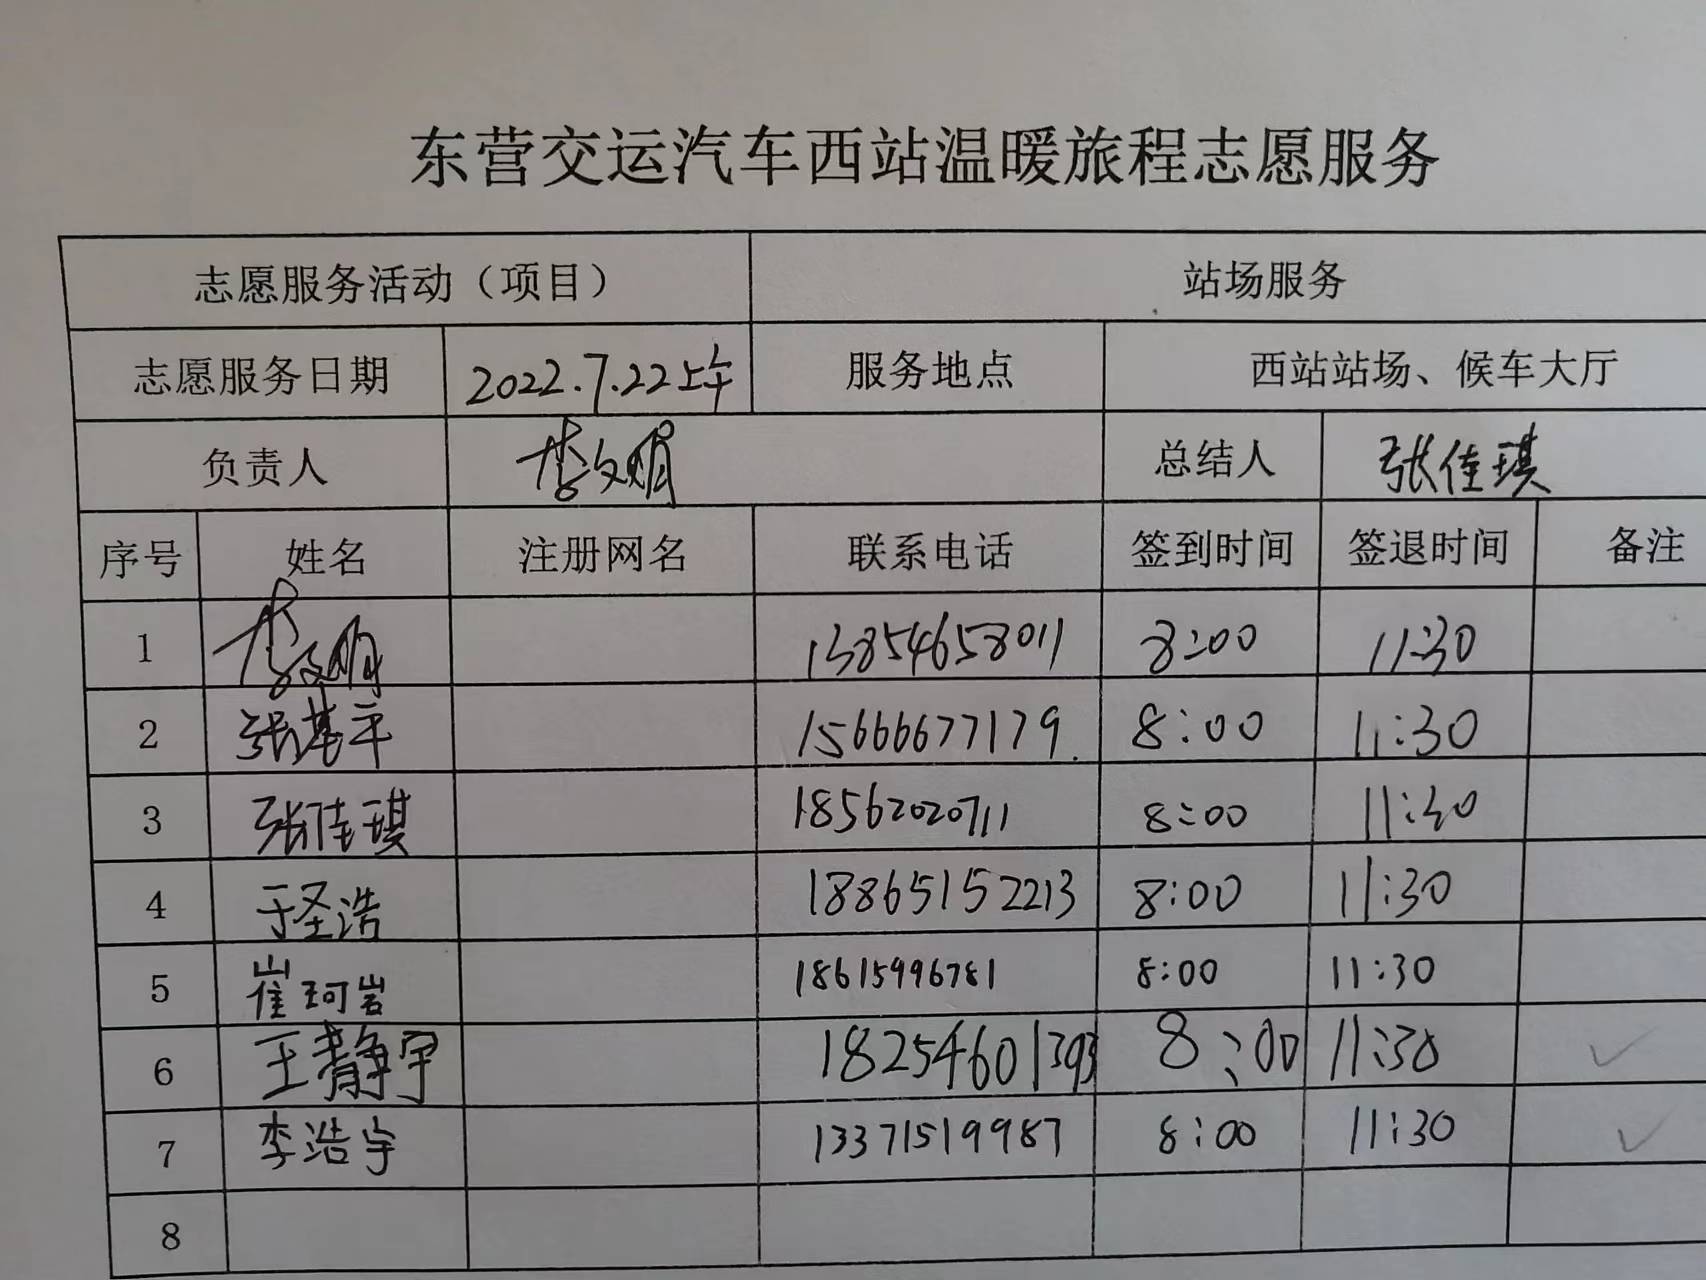 东营交运汽车西站温暖旅程志愿服务
志愿服务活动（项目） 站场服务
志愿服务日期 2022.7.22上午 服务地点 西站站场、候车大厅
负责人 李文娟 总结人 张佳琪
序号 姓名 注册网名 联系电话 签到时间 签退时间 备注
1 李文娟 13854658011 8:00 11:30
2 张基平 15666677179. 8:00 11:30
3 张佳琪 18562020711 8:00 11:30
4 于圣浩 18865152213 8:00 11:30
5 崔珂岩 18615996781 8:00 11:30
6 王静宇 18254601393 8:00 11:30 ✓
7 李浩宇 13371519987 8:00 11:30 ✓
8